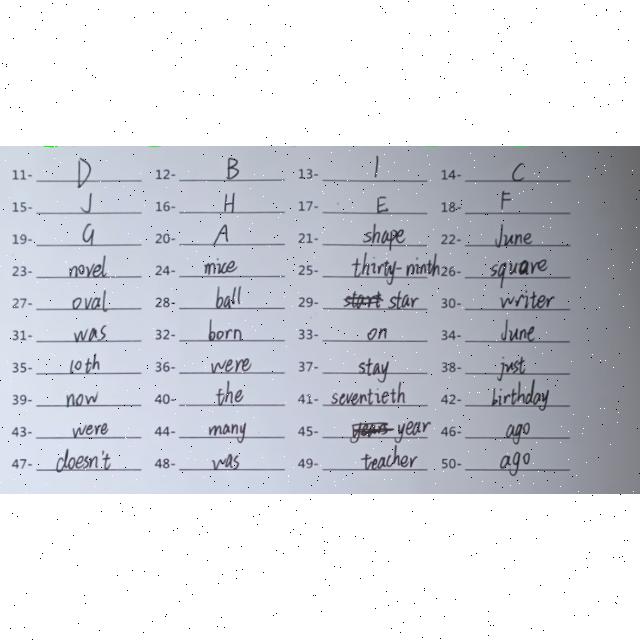 11- D 12- B 13- I 14- C
15- J 16- H 17- E 18- F
19- G 20- A 21- shape 22- June
23- novel 24- mice 25- thirty-ninth 26- square
27- oval 28- ball 29- start star 30- writer
31- was 32- born 33- on 34- June
35- 10th 36- were 37- stay 38- just
39- now 40- the 41- seventieth 42- birthday
43- were 44- many 45- year 46- ago
47- doesn't 48- was 49- teacher 50- ago